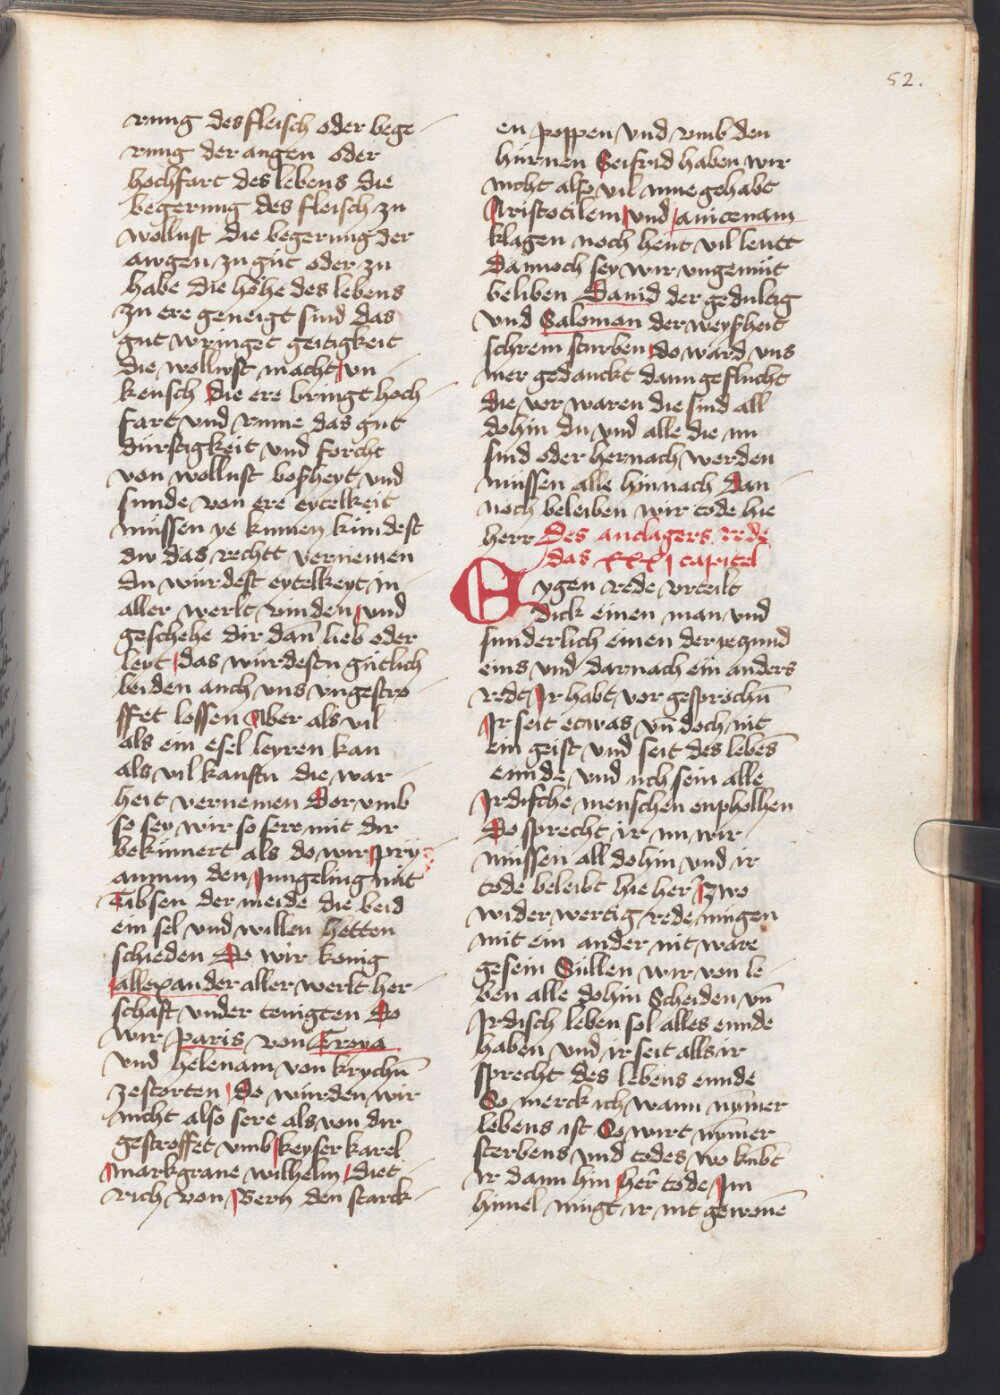 52.
rung des fleisch oder bege
rung der augen oder
hochfart des lebens die
begerung des fleisch zu
wollust die begerung der
awgen zu gut oder zu
habe die höhe des lebens
zu ere geneigt sind das
gut wringet geitigkeit
die wollust macht vn
keusch die ere bringt hoch
fart vnd rume das gut
dürstigkeit vnd forcht
von wollust boßheyt vnd
sunde von ere eytelkeit
müssen ye kumen kündest
dw das rechtt vernemen
du würdest eytelkeyt in
aller werlt vinden vnd
geschehe dir dañ lieb oder
leyt das würdestu gütlich
leiden auch vns vngestro
ffet lossen Aber als vil
als ein esel leyren kan
als vil kanstu die war
heit vernemen Dor vmb
so sey wir so sere mit dir
bekümert als do wir pry
amum den Jungeling mit
Tibsen der meide die beid
ein sel vnd willen hetten
schieden Do wir konig
allexander aller werlt her
schaft vnder tenigten Do
wir paris von Troya
vnd helenam von krychñ
zestorten Do wurden wir
nicht also sere als von dir
gestroffet vmb keyser karel
markgraue wilhelm diet
rich von Bern den starck
en poppen vnd vmb den
hürnen Seifrid haben wir
nicht also vil mue gehabt
Aristotilem vnd auicenam
klagen noch heut vil leutt
Dannoch sey wir vngemüt
beliben Dauid der gedultig
vnd Salomon der weyßheit
schrein sturben do ward vns
mer gedanckt dann geflucht
die vor waren die sind all
dohin du vnd alle die nu
sind oder hernach werden
müssen alle hin nach Dan
noch beleiben wir tode hie
herr Des anclagers rede
das xxxj capitel
Eygen rede vrteilt
dick einen man vnd
sunderlich einen der yeczund
eins vnd darnach ein anders
redt Ir habt vor gesprochñ
Ir seit etwas vñ doch nit
ein geist vnd seit des lebēs
ennde vnd uch sein alle
Irdische menschen enpholhen
So sprecht ir nu wir
müssen all dohin vnd ir
tode beleibt hie her Zwo
wider wertig rede mügen
mit ein ander nit ware
gesein Süllen wir von le
ben alle dohin Scheiden vñ
Irdisch leben sol alles ennde
haben vnd ir seit als ir
sprecht des lebens ennde
So merck ich wann nym̄er
lebens ist So wirt nym̄er
sterbens vnd todes wo kūbt
ir dann hin her̄ tode Im
himel mügt ir nit gewonē